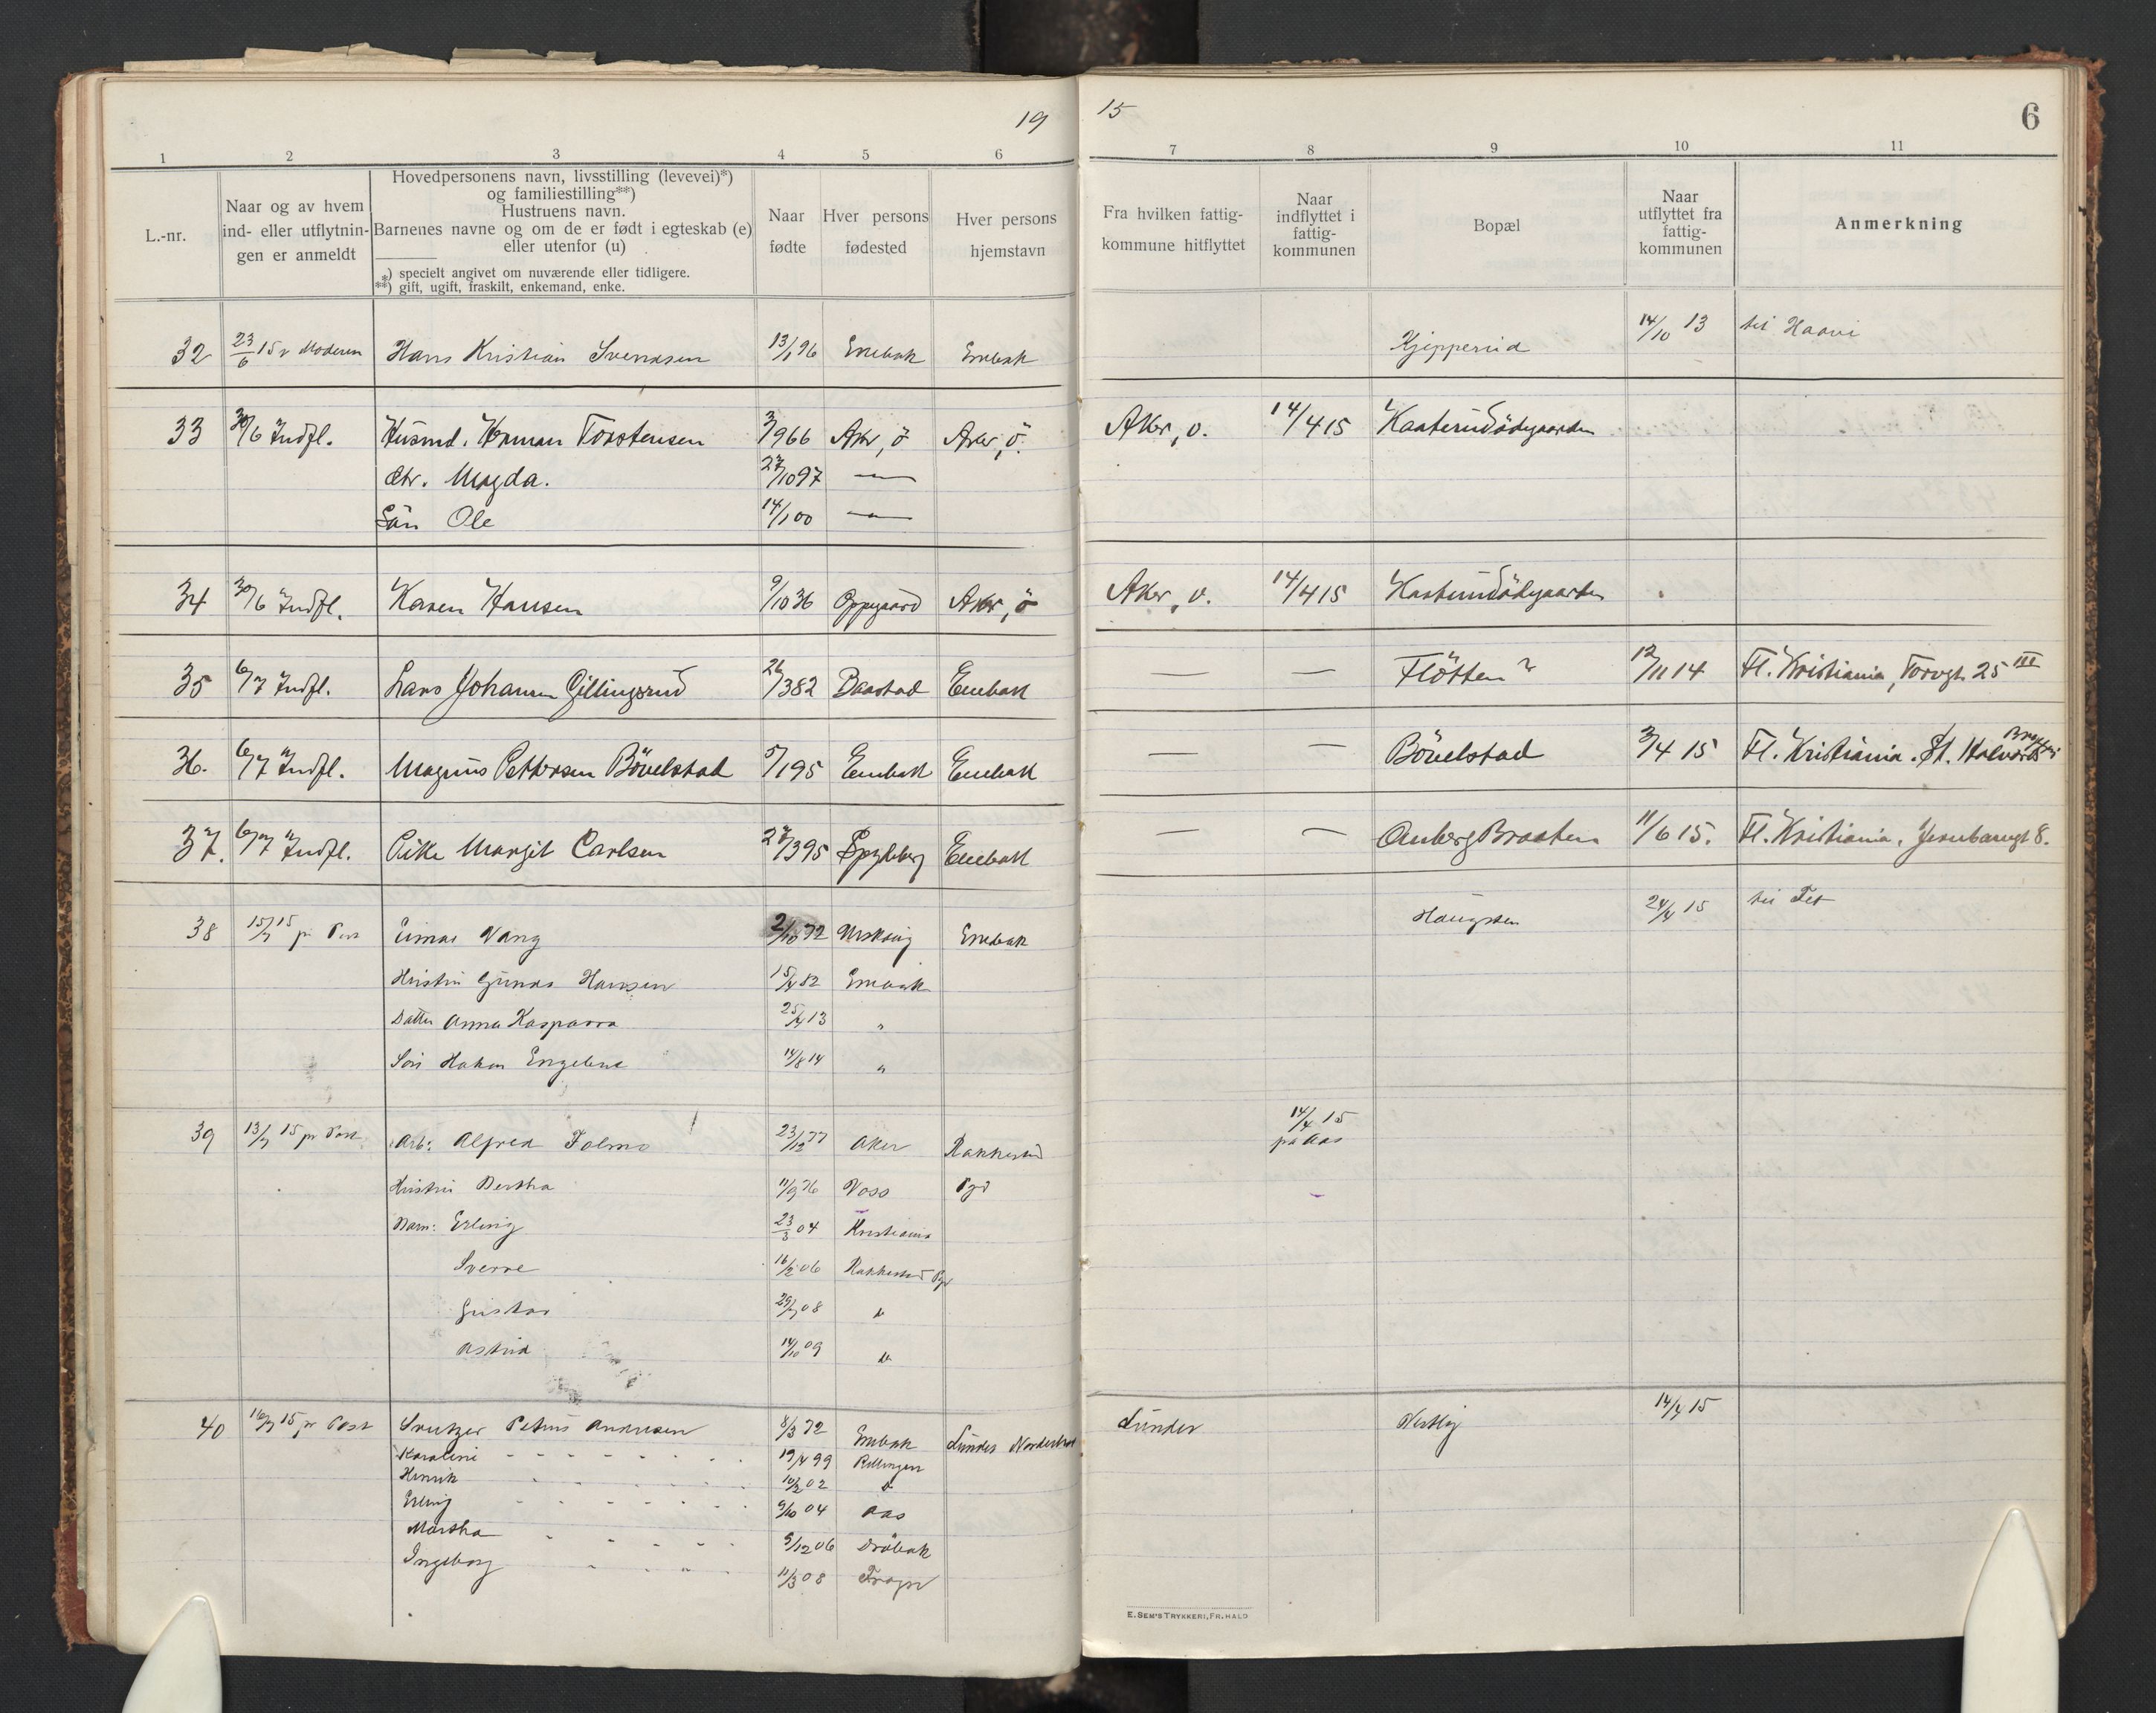 19 15
6
1 2 3 4 5 6 7 8 9 10 11
L.-nr.
Naar og av hvem
ind- eller utflytnin-
gen er anmeldt
Hovedpersonens navn, livsstilling (levevei)*)
og familiestilling**)
Hustruens navn.
Barnenes navne og om de er født i egteskab (e)
eller utenfor (u)
*) specielt angivet om nuværende eller tidligere.
**) gift, ugift, fraskilt, enkemand, enke.
Naar
fødte
Hver persons
fødested
Hver persons
hjemstavn
Fra hvilken fattig-
kommune hitflyttet
Naar
indflyttet i
fattig-
kommunen
Bopæl
Naar
utflyttet fra
fattig-
kommunen
Anmerkning
32 23/6 15 v Moderen Hans Kristian Svendsen 13/1 96 Enebak Enebak Kjeppersid 14/10 13 til Haavi
33 30/6 Indfl. Husmd. Herman Torstensen 3/9 66 Aker, ö Aker, ö. Aker, v. 14/4 15 Kaaterudödegaarden
dtr. Magda. 27/10 97 —"—
Sön Ole 14/1 00 —"—
34 30/6 Indfl. Karen Hansen 9/10 36 Oppegaard Aker, ö Aker, v. 14/4 15 Kaaterudödegaarden
35 6/7 Indfl. Lars Johansen Gillingsrud 26/3 82 Baastad Enebak — — Flötten ? 12/11 14 Fl. Kristiania, Torvgt. 25 III
36. 6/7 Indfl. Magnus Pettersen Bövelstad 5/1 95 Enebak Enebak — — Bövelstad 3/4 15 Fl. Kristiania. St. Halvards
37. 6/7 Indfl. Pike Margit Carlsen 27/3 95 Spydeberg Enebak — — Braaten 11/6 15. Fl. Kristiania. 8.
38 15/7 15 pr Post Einar Vang 2/10 72 Urskoug Enebak Haugsten 24/4 15 til Fet
Hustru Gunda Hansen 15/4 82 Enebak
Datter Anna Kasparra 25/4 13 "
Sön Hakon Engebret 14/8 14 "
39 13/7 15 pr Post Arb: Alfred Folmo 23/12 77 Aker Rakkestad 14/4 15
fra Aas
Hustru Bertha 11/9 76 Voss Pgd
Barn: Erling 23/3 04 Kristiania
Sverre 16/2 06 Rakkestad Pgd
Gustav 29/7 08 do
Astrid 14/10 09 do
40 16/7 15 pr Post Sveitzer Petrus Andresen 8/3 72 Enebak Lunder Norderhov Lunder Vestby 14/4 15
Karoline - - - - 19/4 99 Rellingen
Henrik - - - 10/2 02 do
Erling - - - - 9/10 04 Aas
Martha - - - - 9/12 06 Dröbak
Ingeborg - - - 11/3 08 Frogn
E. SEM'S TRYKKERI, FR.HALD